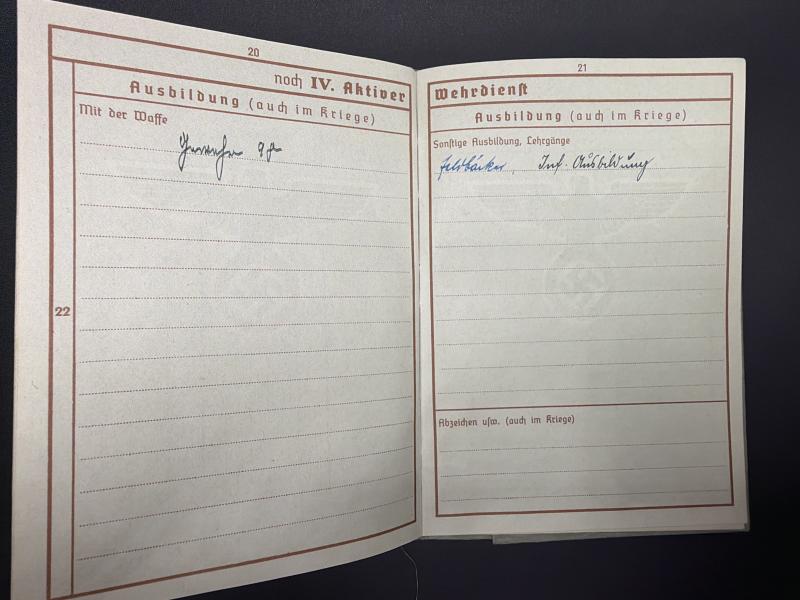 20
noch IV. Aktiver
Ausbildung (auch im Kriege)
Mit der Waffe
Gewehr 98
22
21
Wehrdienst
Ausbildung (auch im Kriege)
Sonstige Ausbildung, Lehrgänge
Feldbäcker, Inf. Ausbildung
Abzeichen usw. (auch im Kriege)